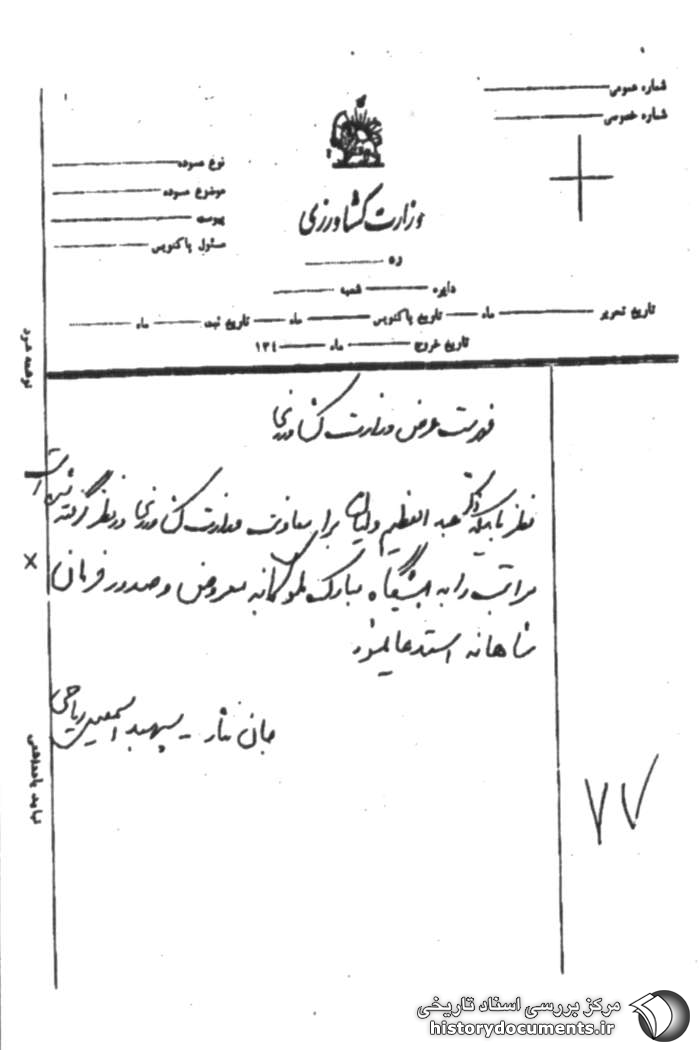 شماره عمومی
شماره خصوصی
نوع مسوده
موضوع مسوده
پیوست
مسئول پاکنویس
وزارت کشاورزی
ره
دایره شعبه
تاریخ تحریر ماه تاریخ پاکنویس ماه تاریخ ثبت ماه
تاریخ خروج ماه ۱۳۴
فهرست عرض وزارت کشاورزی
نظر باینکه دکتر عبدالعظیم ولیان برای معاونت وزارت کشاورزی در نظر گرفته شده است
مراتب را به پیشگاه مبارک ملوکانه معروض و صدور فرمان
شاهانه استدعا میشود
جان نثار - سپهبد اسمعیل ریاحی
۷۷
توجه شود
نباید پاک
مرکز بررسی اسناد تاریخی
historydocuments.ir